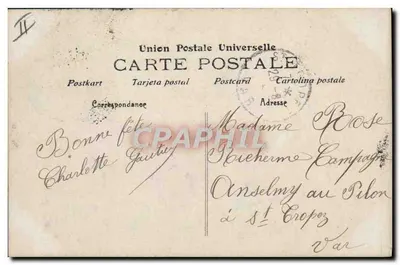 II
Union Postale Universelle
CARTE POSTALE
Postkart Tarjeta postal Postcard Cartolina postale
Correspondance
Adresse
Bonne fête
Charlotte Gautier
Madame Rose
Richerme Campagne
Anselmy au Pilon
à St Tropez
Var
CPAPHIL